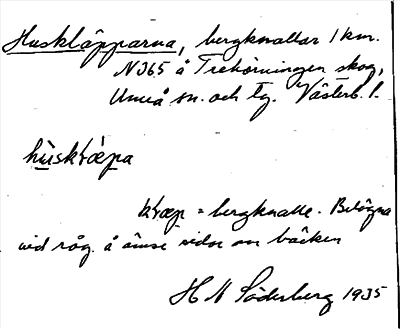 Huskläpparna, bergknallar 1 km.
N365 å Trehörningen skog,
Umeå sn. och tg. Västerb. l.
hùsklǽpa
klæp = bergknalle. Belägna
vid råg. å ömse sidor om bäcken
H N Söderberg 1935